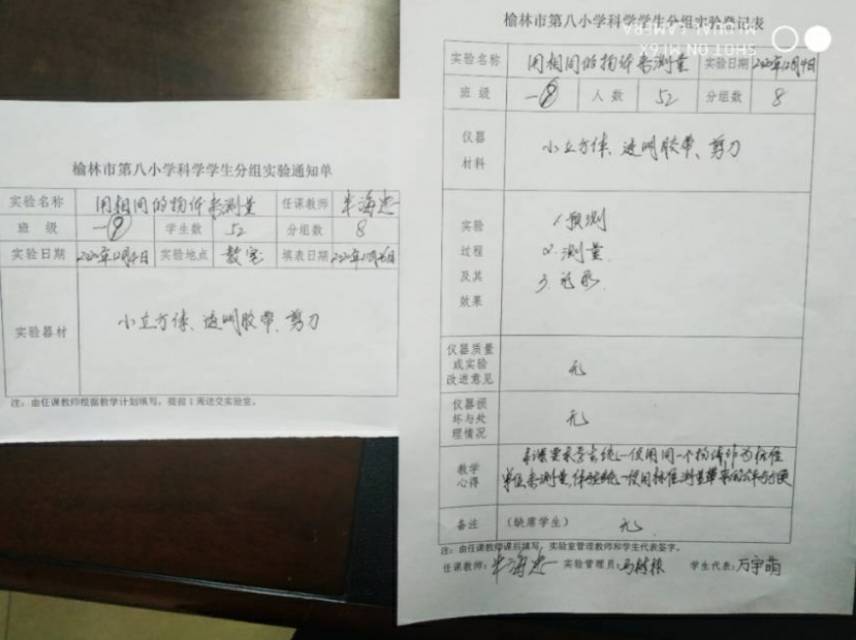 榆林市第八小学科学学生分组实验通知单
实验名称 用相同的物体来测量 任课教师
班级 一9 学生数 52 分组数 8
实验日期 2020年12月4日 实验地点 教室 填表日期
实验器材 小立方体、透明胶带、剪刀
注:由任课教师根据教学计划填写,提前1周送交实验室。
榆林市第八小学科学学生分组实验登记表
SHOT ON MI 6X
MI DUAL CAMERA
实验名称 用相同的物体来测量 实验日期 2020年12月4日
班级 一9 人数 52 分组数 8
仪器材料 小立方体、透明胶带、剪刀
实验过程及其效果
1 预测
2. 测量
3.
仪器质量或实验改进意见 无
仪器损坏与处理情况 无
教学心得 本课要求学会统一使用同一个物体作为标准
单位来测量,体验统一使用标准测量单
备注 (缺席学生) 无
注:由任课教师课后填写,实验室管理教师和学生代表签字。
任课教师: 实验管理员: 学生代表: